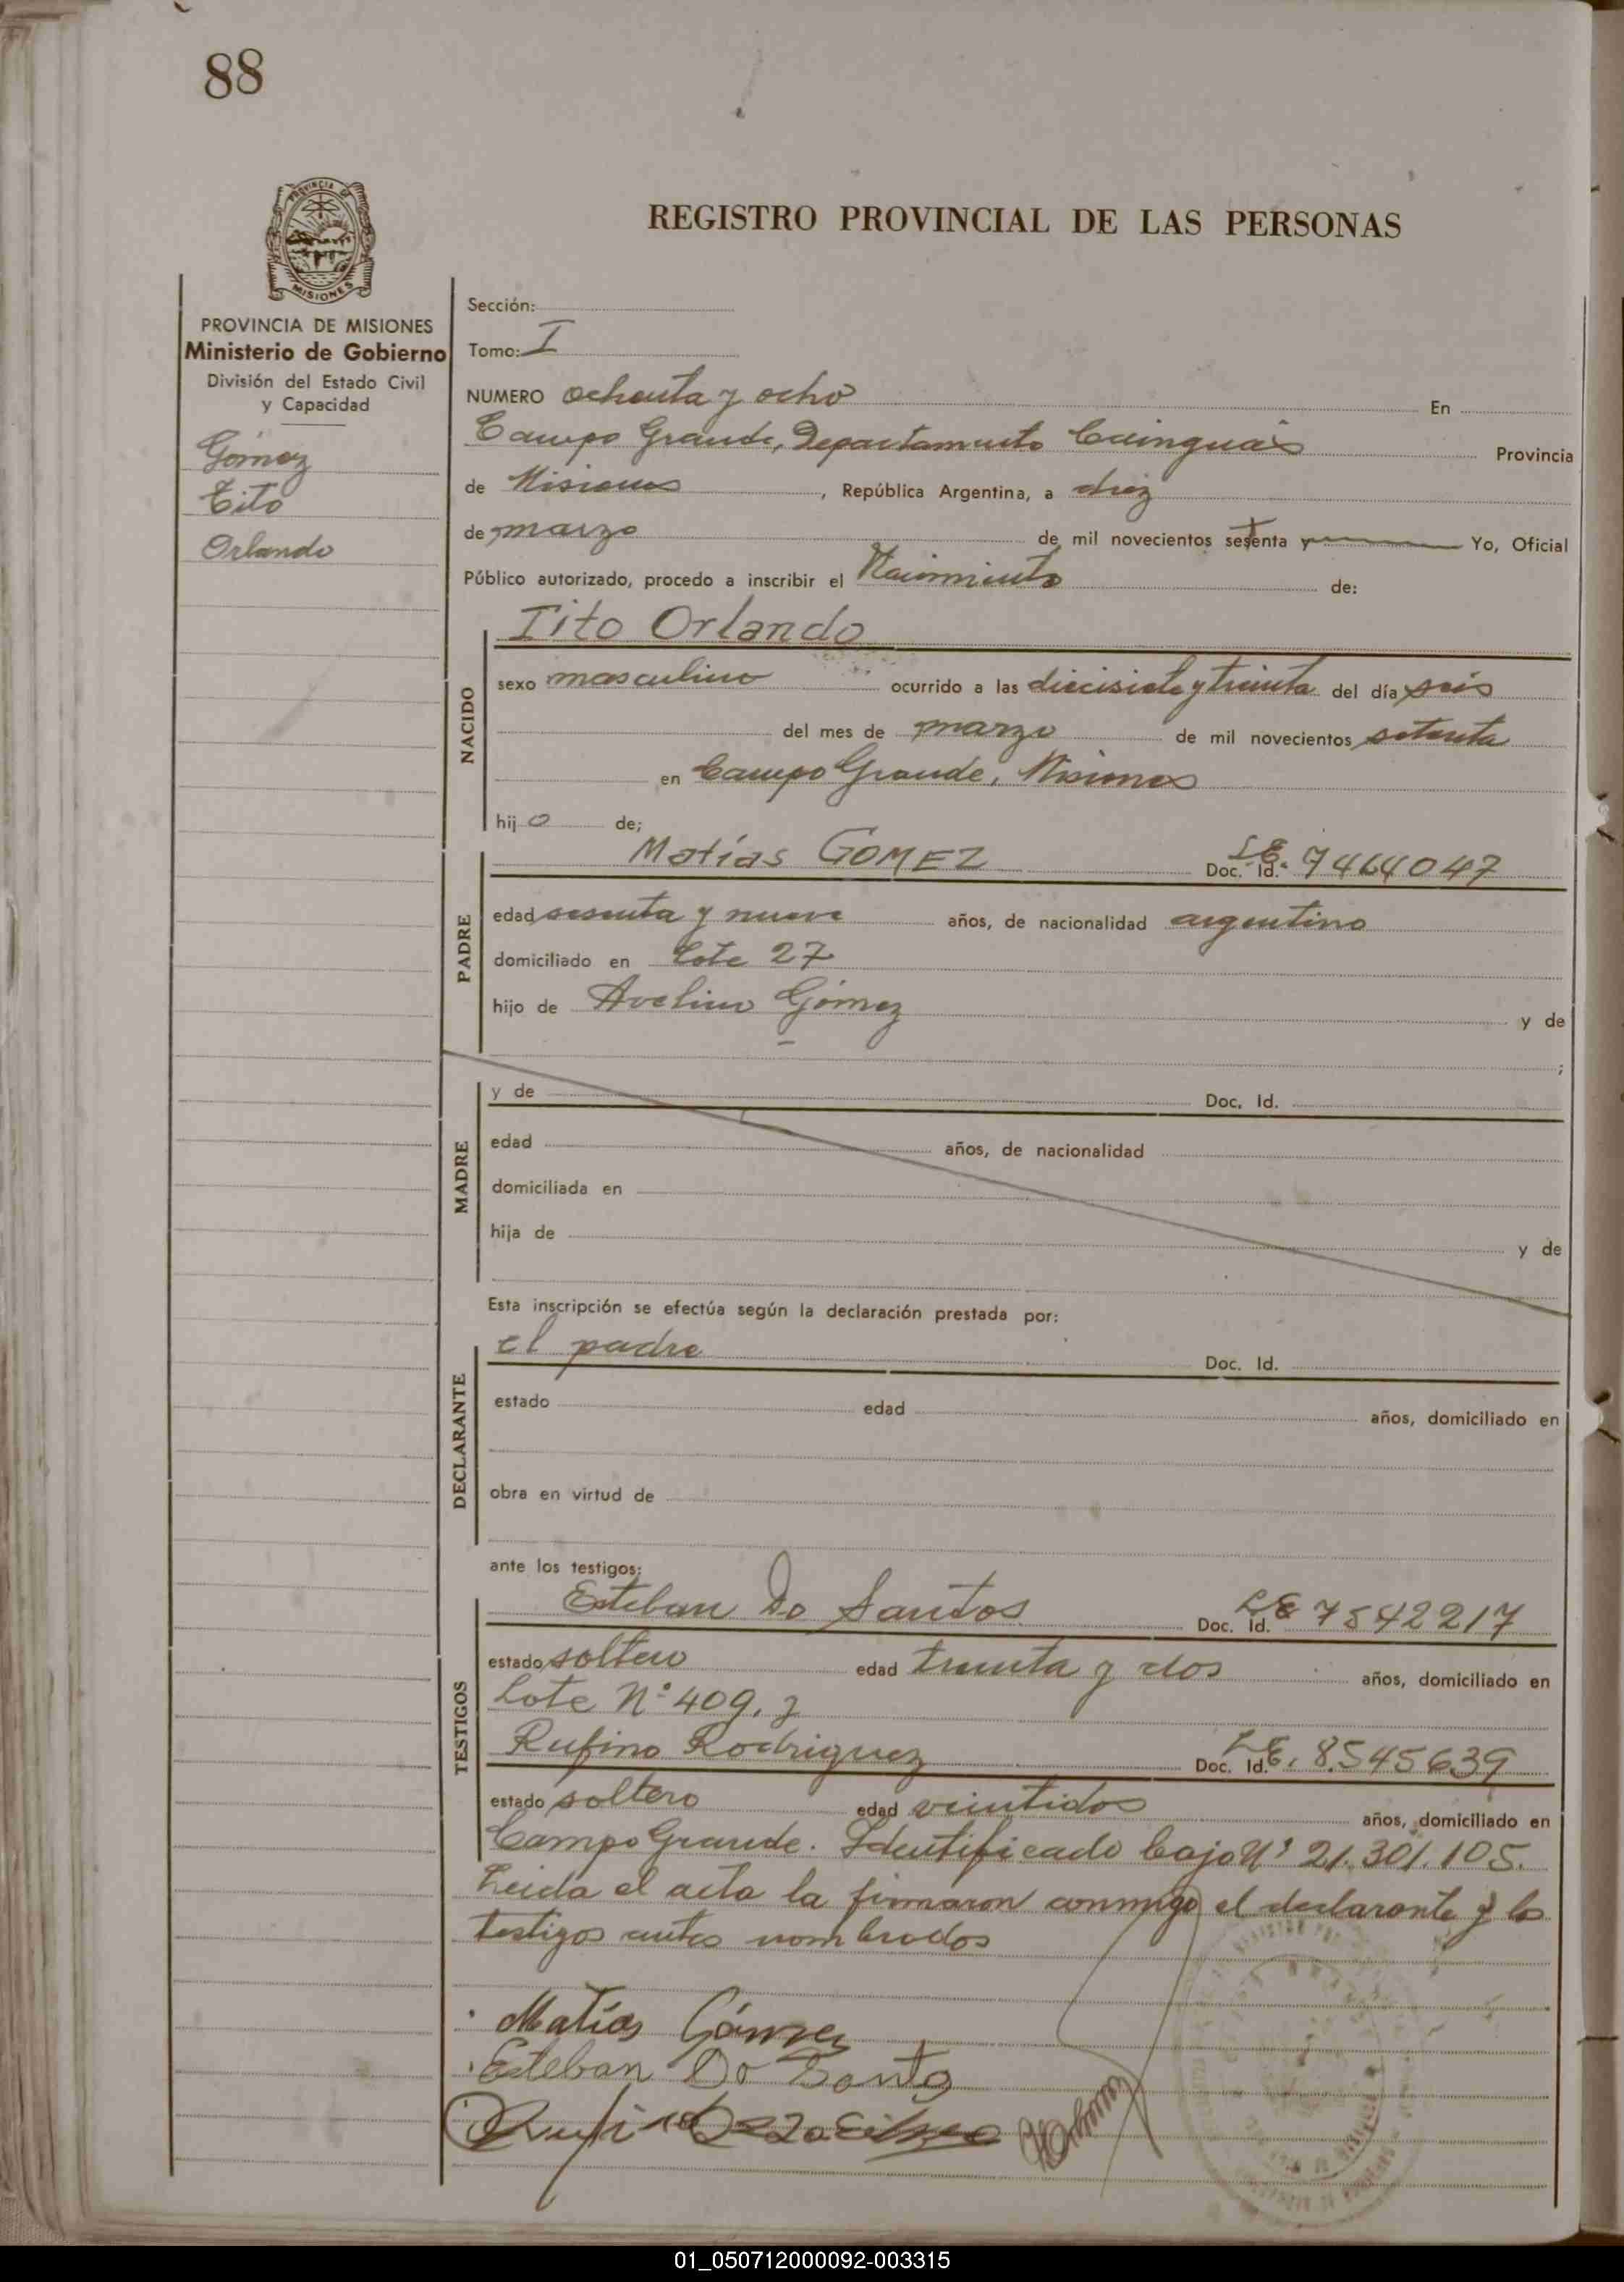 88
PROVINCIA DE
MISIONES
PROVINCIA DE MISIONES
Ministerio de Gobierno
División del Estado Civil
y Capacidad
Gómez
Tito
Orlando
REGISTRO PROVINCIAL DE LAS PERSONAS
Sección:
Tomo: I
NUMERO ochenta y ocho En
Campo Grande, Departamento Cainguás Provincia
de Misiones, República Argentina, a diez
de marzo de mil novecientos setenta y Yo, Oficial
Público autorizado, procedo a inscribir el Nacimiento de:
Tito Orlando
NACIDO
sexo masculino ocurrido a las diecisiete y treinta del día seis
del mes de marzo de mil novecientos setenta
en Campo Grande, Misiones
hijo de;
Matías GOMEZ Doc. Id. LE. 7464047
PADRE
edad sesenta y nueve años, de nacionalidad argentino
domiciliado en Lote 27
hijo de Avelino Gómez y de
;
y de Doc. Id.
MADRE
edad años, de nacionalidad
domiciliada en
hija de y de
Esta inscripción se efectúa según la declaración prestada por:
el padre Doc. Id.
DECLARANTE
estado edad años, domiciliado en
obra en virtud de
ante los testigos:
Esteban Do Santos Doc. Id. LE 7542217
TESTIGOS
estado soltero edad treinta y dos años, domiciliado en
Lote Nº 409. y
Rufino Rodriguez Doc. Id. LE. 8.545639
estado soltero edad veintidos años, domiciliado en
Campo Grande. Identificado bajo Nº 21.301.105.
Leida el acta la firmaron conmigo el declarante y los
testigos antes nombrados
Matías Gómez
Esteban Do Santo
01_050712000092-003315